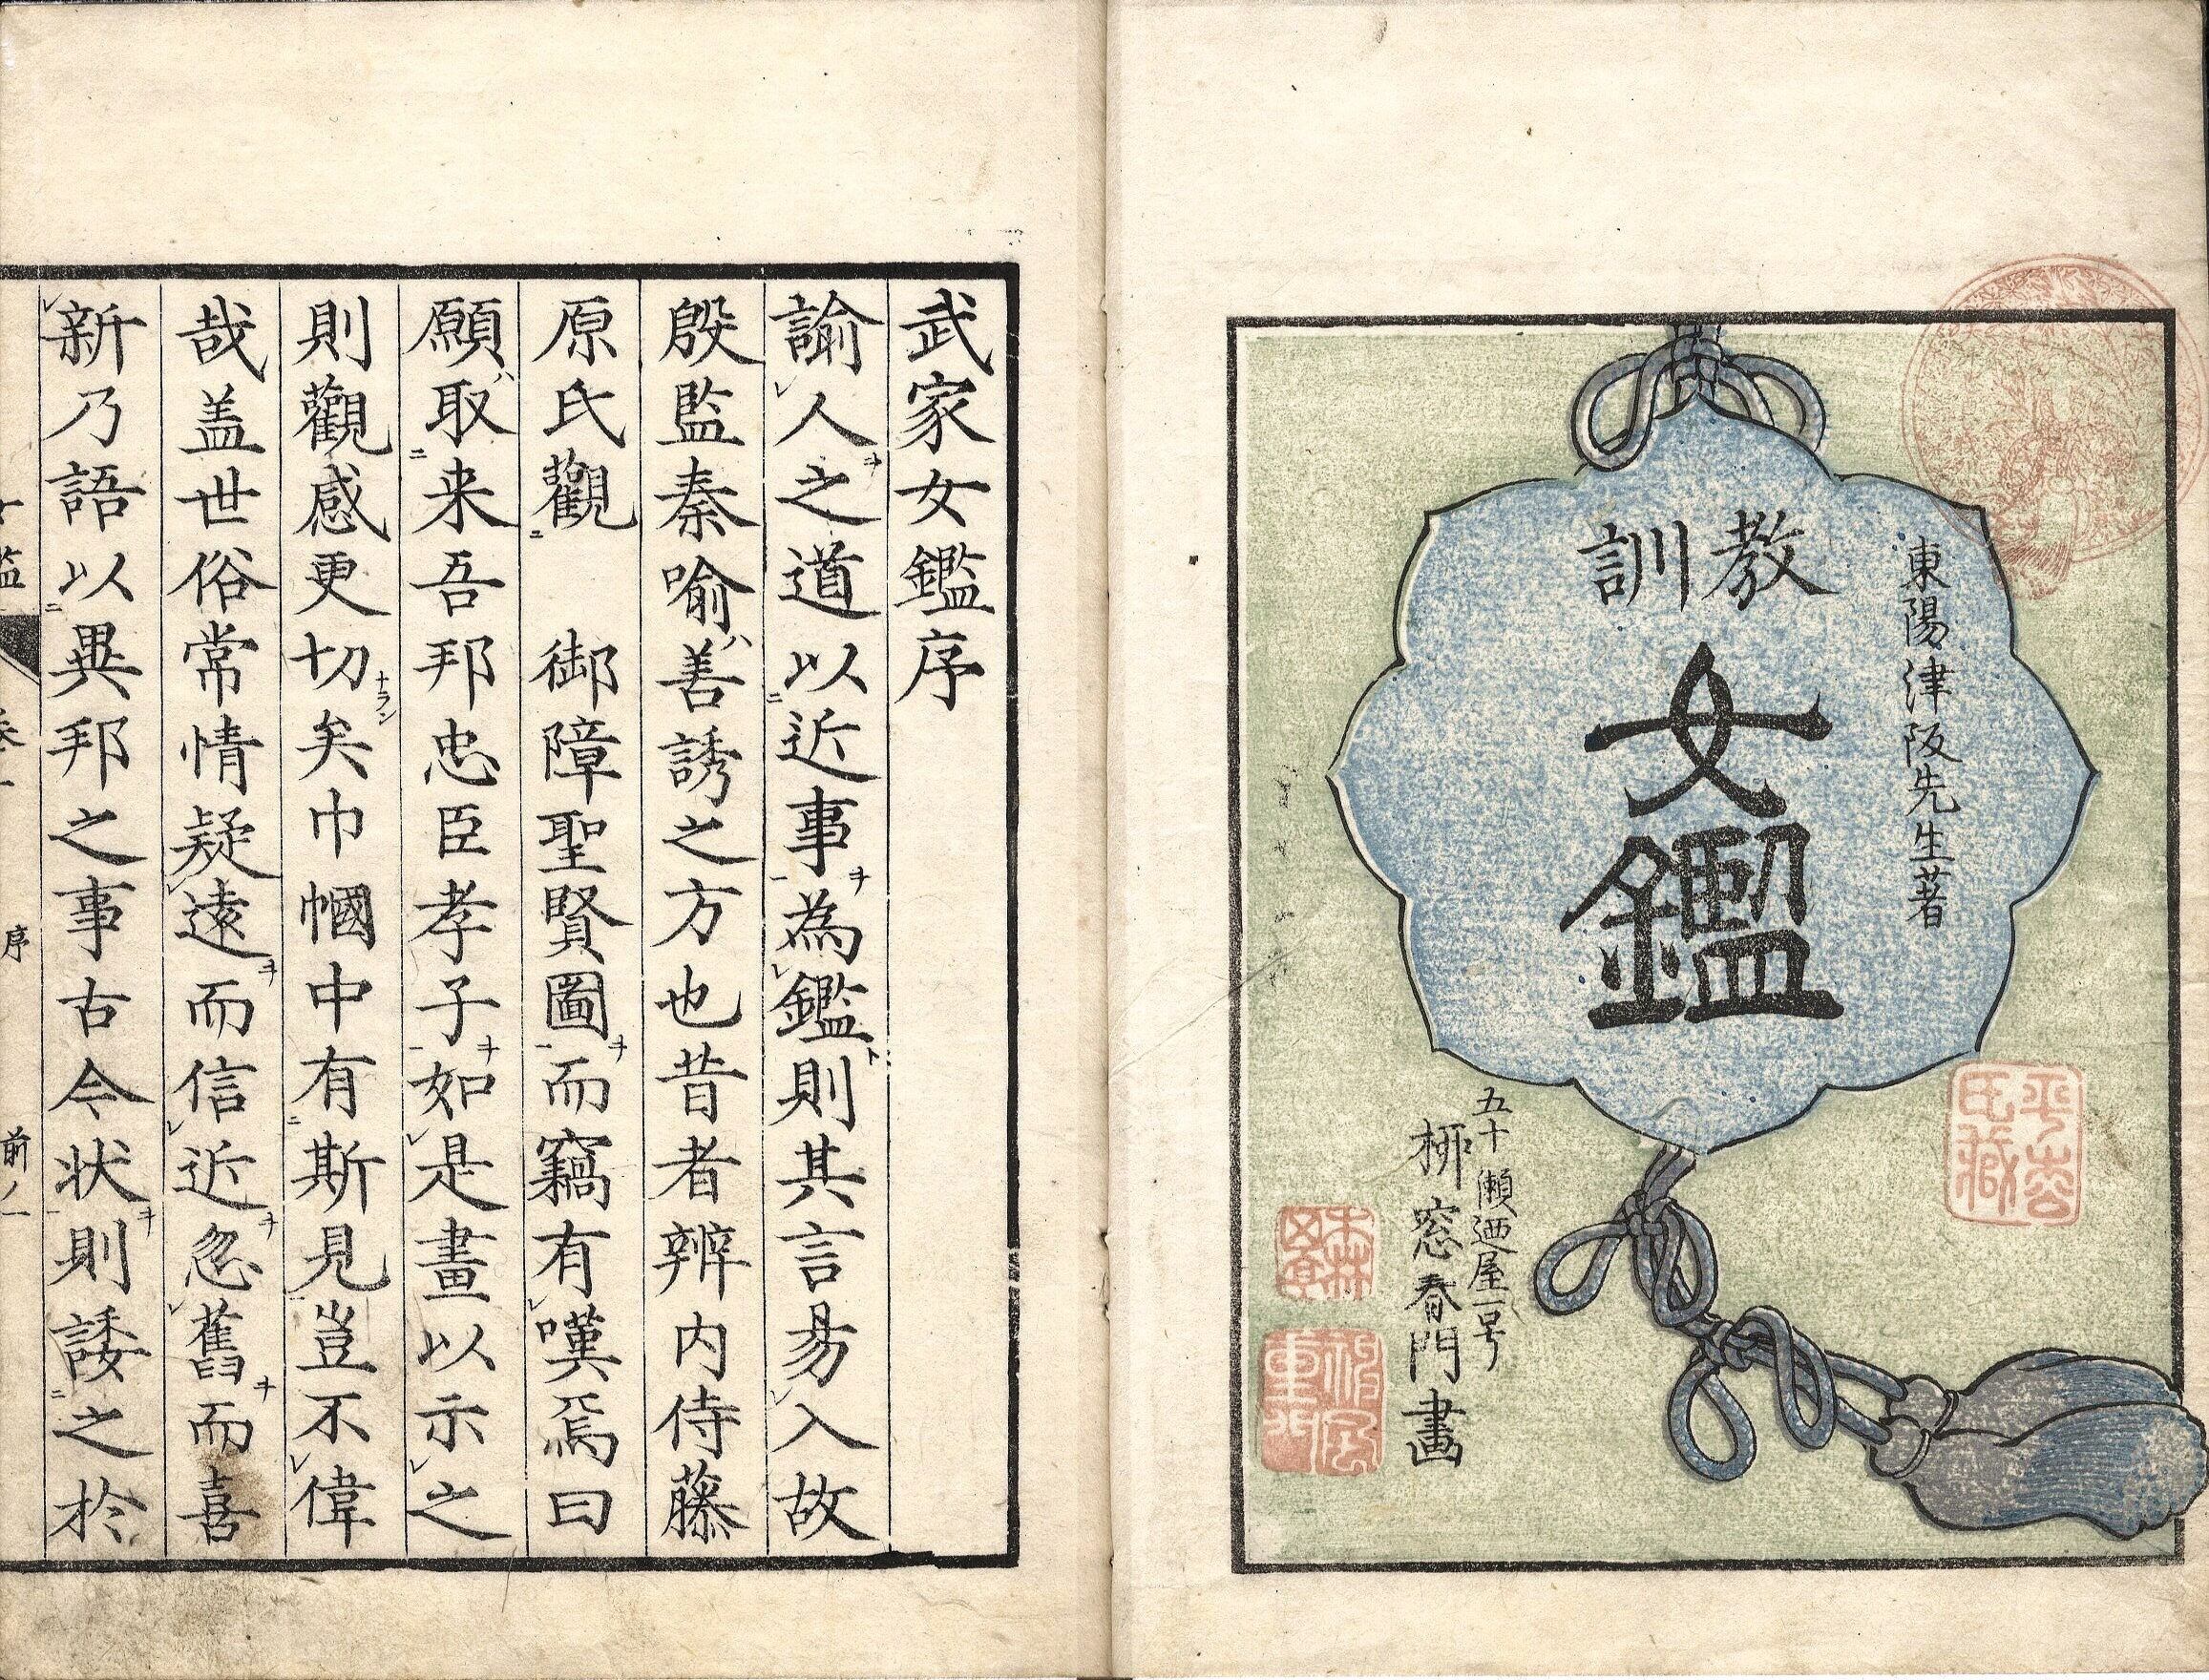 東陽津阪先生著
教訓
女鑑
五十瀬廼屋一号
柳窓春門畫
武家女鑑序
諭人之道以近事為鑑則其言易入故
殷監秦喻善誘之方也昔者辨内侍藤
原氏觀　御障聖賢圖而竊有嘆焉曰
願取来吾邦忠臣孝子如是畫以示之
則觀感更切矣巾幗中有斯見豈不偉
哉盖世俗常情疑遠而信近忽舊而喜
新乃語以異邦之事古今状則諉之於
序
前ノ一